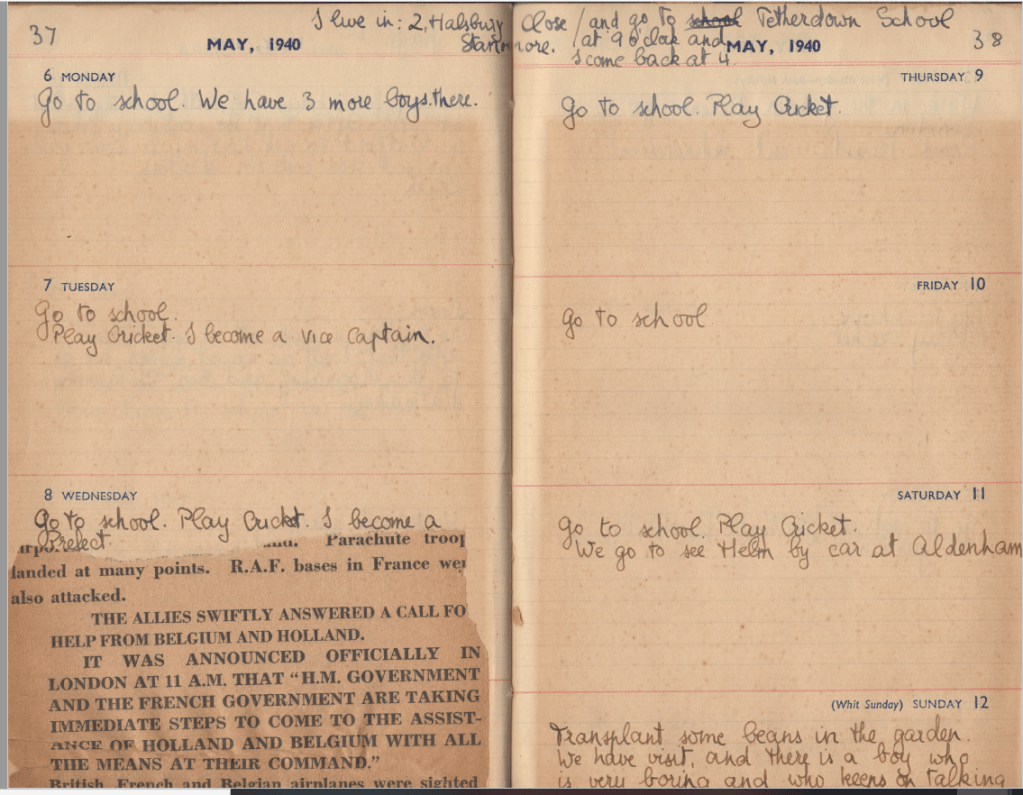 37
I live in: 2, Halsbury Close / and go to school Tetherdown School
Stanmore. / at 9 o'clok and
I come back at 4
38
MAY, 1940
6 MONDAY
Go to school. We have 3 more boys there.
7 TUESDAY
Go to school.
Play Cricket. I become a vice Captain.
8 WEDNESDAY
Go to school. Play Cricket. I become a
Prefect.
Parachute troop
landed at many points. R.A.F. bases in France wer
also attacked.
THE ALLIES SWIFTLY ANSWERED A CALL FO
HELP FROM BELGIUM AND HOLLAND.
IT WAS ANNOUNCED OFFICIALLY IN
LONDON AT 11 A.M. THAT “H.M. GOVERNMENT
AND THE FRENCH GOVERNMENT ARE TAKING
IMMEDIATE STEPS TO COME TO THE ASSIST-
ANCE OF HOLLAND AND BELGIUM WITH ALL
THE MEANS AT THEIR COMMAND.”
British, French and Belgian airplanes were sighted
MAY, 1940
THURSDAY 9
Go to school. Play Cricket.
FRIDAY 10
Go to school
SATURDAY 11
Go to school. Play Cricket.
We go to see Helm by car at Aldenham
(Whit Sunday) SUNDAY 12
Transplant some beans in the garden.
We have visit, and there is a boy who
is very boring and who keeps on talking